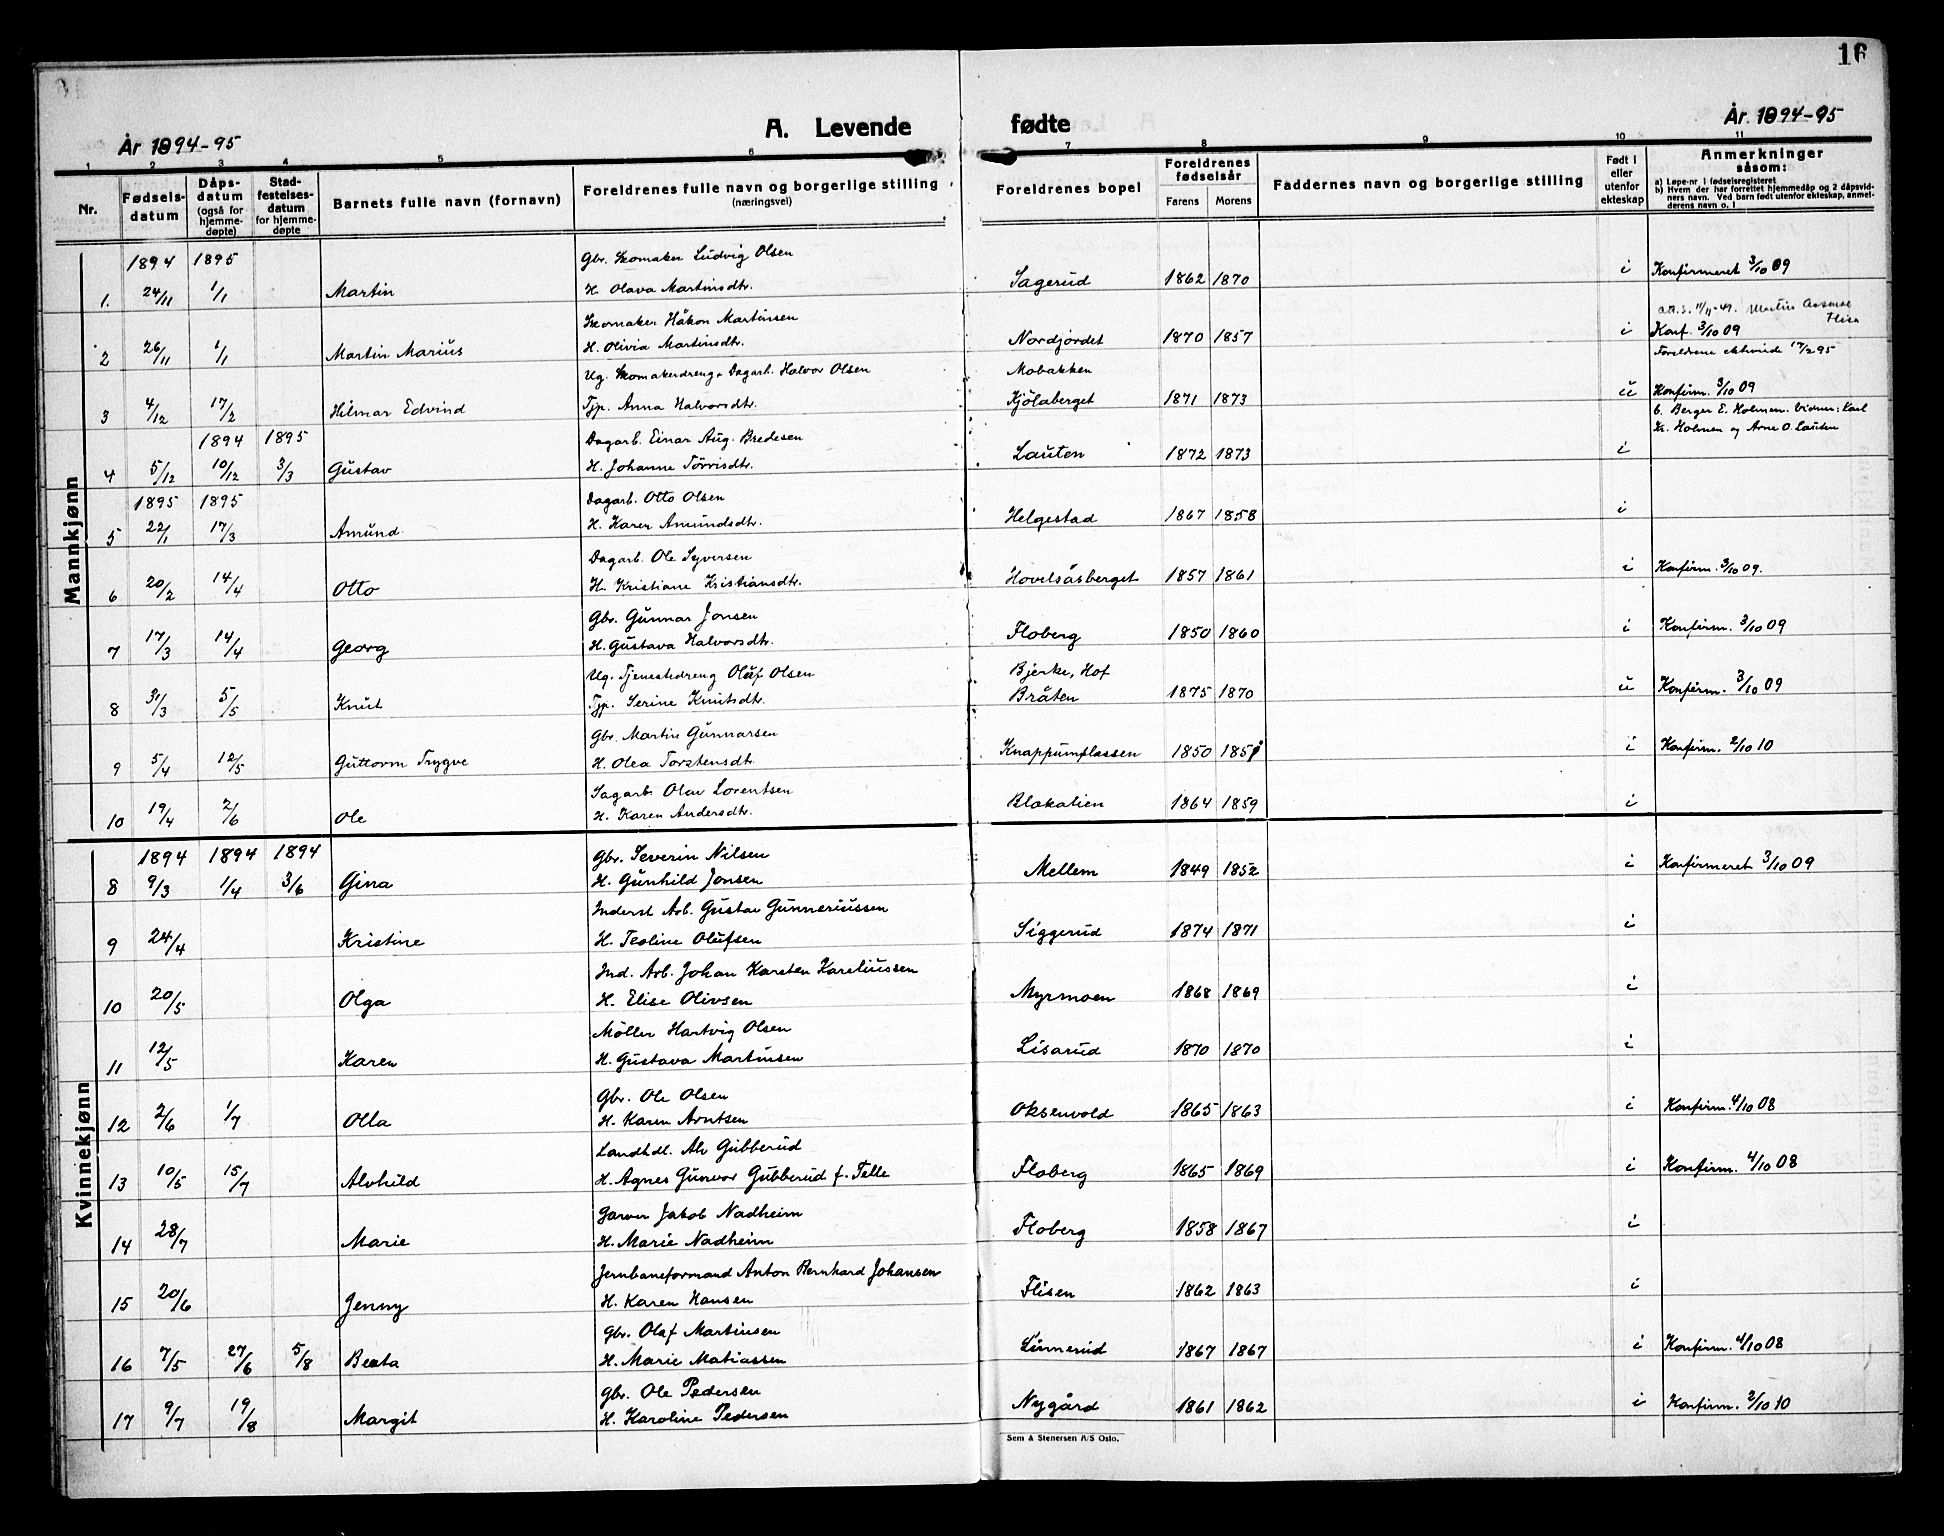 16
År 1894-95
A. Levende fødte
År 1894-95
1 2 3 4 5 6 7 8 9 10 11
Nr. Fødselsdatum Dåpsdatum (også for hjemmedøpte) Stadfestelsesdatum for hjemmedøpte Barnets fulle navn (fornavn) Foreldrenes fulle navn og borgerlige stilling (næringsvei) Foreldrenes bopel Foreldrenes fødselsår Farens Morens Faddernes navn og borgerlige stilling Født i eller utenfor ekteskap Anmerkninger såsom:
a) Løpe-nr i fødselsregisteret
b) Hvem der har forrettet hjemmedåp og 2 dåpsvidners navn. Ved barn født utenfor ekteskap, anmelderens navn o. l
Mannkjønn
1894 1895 Gbr. Skomaker Ludvig Olsen
1. 24/11 1/1 Martin H. Olava Martinsdtr. Sagerud 1862 1870 i Konfirmeret 3/10 09
att. s. 11/11-49. Martin
Skomaker Håkon Martinsen
2 26/11 1/1 Martin Marius H. Olivia Martinsdtr. Nordjordet 1870 1857 i Konf. 3/10 09
Foreldrene ektevide 17/2 95
Ug. Skomakerdreng + Dagarb. Halvor Olsen Mobakken
3 4/12 17/2 Hilmar Edvind Tjp. Anna Halvorsdtr. Kjölaberget 1871 1873 u Konfirm. 3/10 09
b. Berger E. Holmen. Vidner: Karl
Kr. Holmen og Arne O. Lauten
1894 1895 Dagarb. Einar Aug. Bredesen
4 5/12 10/12 3/3 Gustav H. Johanne Törrisdtr. Lauten 1872 1873 i
1895 1895 Dagarb. Otto Olsen
5 22/1 17/3 Amund H. Karen Amundsdtr. Helgestad 1867 1858 i
Dagarb. Ole Syversen
6 20/2 14/4 Otto H. Kristiane Kristiansdtr. Hovelsåsberget 1857 1861 i Konfirm. 3/10 09.
Gbr. Gunnar Jonsen
7 17/3 14/4 Georg H. Gustava Halvorsdtr. Floberg 1850 1860 i Konfirm. 3/10 09
Ug. Tjenestedreng Oluf Olsen Bjerke, Hof
8 31/3 5/5 Knut Tjp. Serine Knutsdtr. Bråten 1875 1870 u Konfirm. 3/10 09
Gbr. Martin Gunnarsen
9 5/4 12/5 Guttorm Trygve H. Olea Torstensdtr. Knappumplassen 1850 1851 i Konfirm. 2/10 10
Sagarb. Olav Lorentsen
10 19/4 2/6 Ole H. Karen Andersdtr. Blokalien 1864 1859 i
Kvinnekjønn
1894 1894 1894 Gbr. Severin Nilsen
8 9/3 1/4 3/6 Gina H. Gunhild Jonsen Mellem 1849 1852 i Konfirmeret 3/10 09
Inderst Arb. Gustav Gunneriussen
9 24/4 Kristine H. Teoline Olufsen Siggerud 1874 1871 i
Ind. Arb. Johan Karsten Kareliussen
10 20/5 Olga H. Elise Olivsen Myrmoen 1868 1869 i
Möller Hartvig Olsen
11 12/5 Karen H. Gustava Martinsen Lisarud 1870 1870 i
Gbr. Ole Olsen
12 2/6 1/7 Olla H. Karen Arntsen Oksenvold 1865 1863 i Konfirm. 4/10 08
Landhdl. Alv Gubberud
13 10/5 15/7 Alvhild H. Agnes Gunvor Gubberud f. Telle Floberg 1865 1869 i Konfirm. 4/10 08
Garver Jakob Nadheim
14 28/7 Marie H. Marie Nadheim Floberg 1858 1867 i
Jernbaneformand Anton Bernhard Johansen
15 20/6 Jenny H. Karen Hansen Flisen 1862 1863 i
Gbr. Olaf Martinsen
16 7/5 27/6 5/8 Beata H. Marie Matiassen Linnerud 1867 1867 i Konfirm. 4/10 08
Gbr. Ole Pedersen
17 9/7 19/8 Margit H. Karoline Pedersen Nygård 1861 1862 i Konfirm. 2/10 10
Sem & Stenersen A/S Oslo.